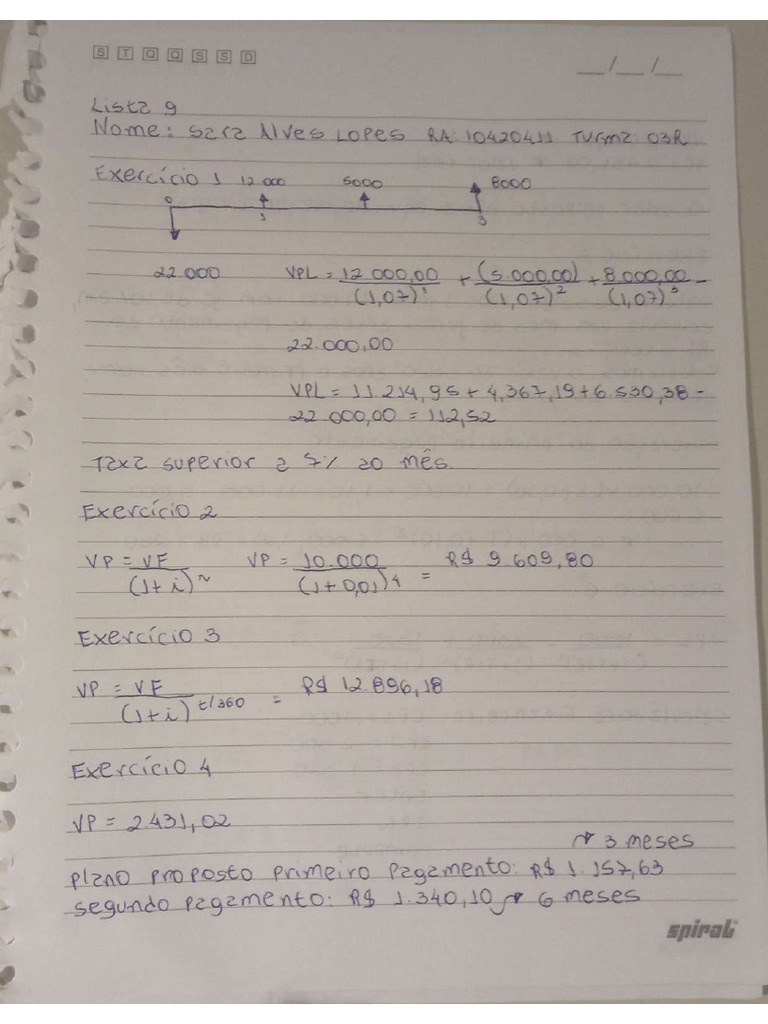 S T Q Q S S D
__/__/__
Lista 9
Nome: Sara Alves Lopes RA: 10420411 Turma: 03R
Exercício 1 12.000 5000 8000
0 1 3
22.000 VPL = 12.000,00 + (5.000,00) + 8.000,00 -
(1,07)¹ (1,07)² (1,07)³
22.000,00
VPL = 11.214,95 + 4,367,19 + 6.530,38 -
22.000,00 = 112,52
Taxa superior a 7% ao mês.
Exercício 2
VP = VF VP = 10.000 = R$ 9.609,80
(1+i)ⁿ (1+0,01)⁴
Exercício 3
VP = VF = R$ 12.896,18
(1+i)^t/360
Exercício 4
VP = 2.431,02
→ 3 meses
Plano proposto primeiro pagamento: R$ 1.157,63
segundo pagamento: R$ 1.340,10 → 6 meses
spiral